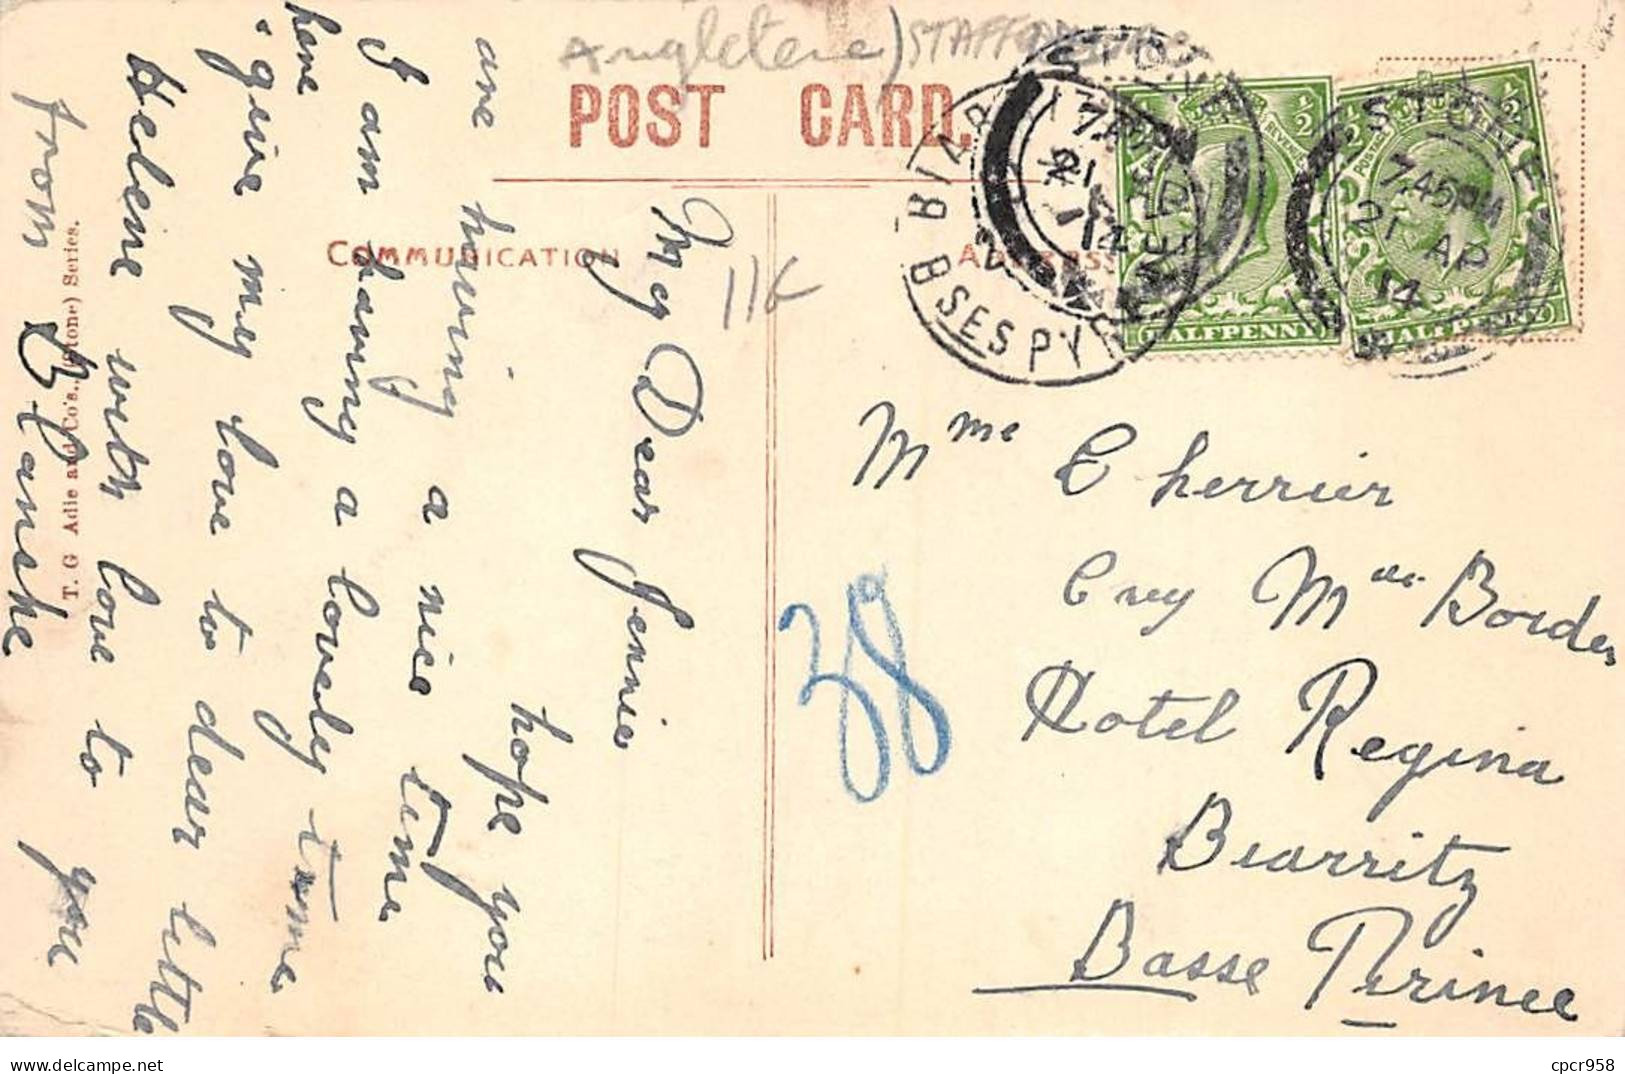 Angleterre) STAFFORDSHIRE
POST CARD.
COMMUNICATION
ADDRESS
116
My Dear Jennie
hope you
are having a nice time
I am having a lovely time
here
give my love to dear little
Helene with love to you
from Blanshe
T. G Adie and Co's., (Stone) Series.
38
Mme Cherrier
Mlle Borden
Hotel Regina
Biarritz
Basse Pirinee
STONE
7.45PM
21 AP
14
STONE
21 AP
14
BIARRITZ
BSES PYR
HALFPENNY
HALFPENNY
cpcr958